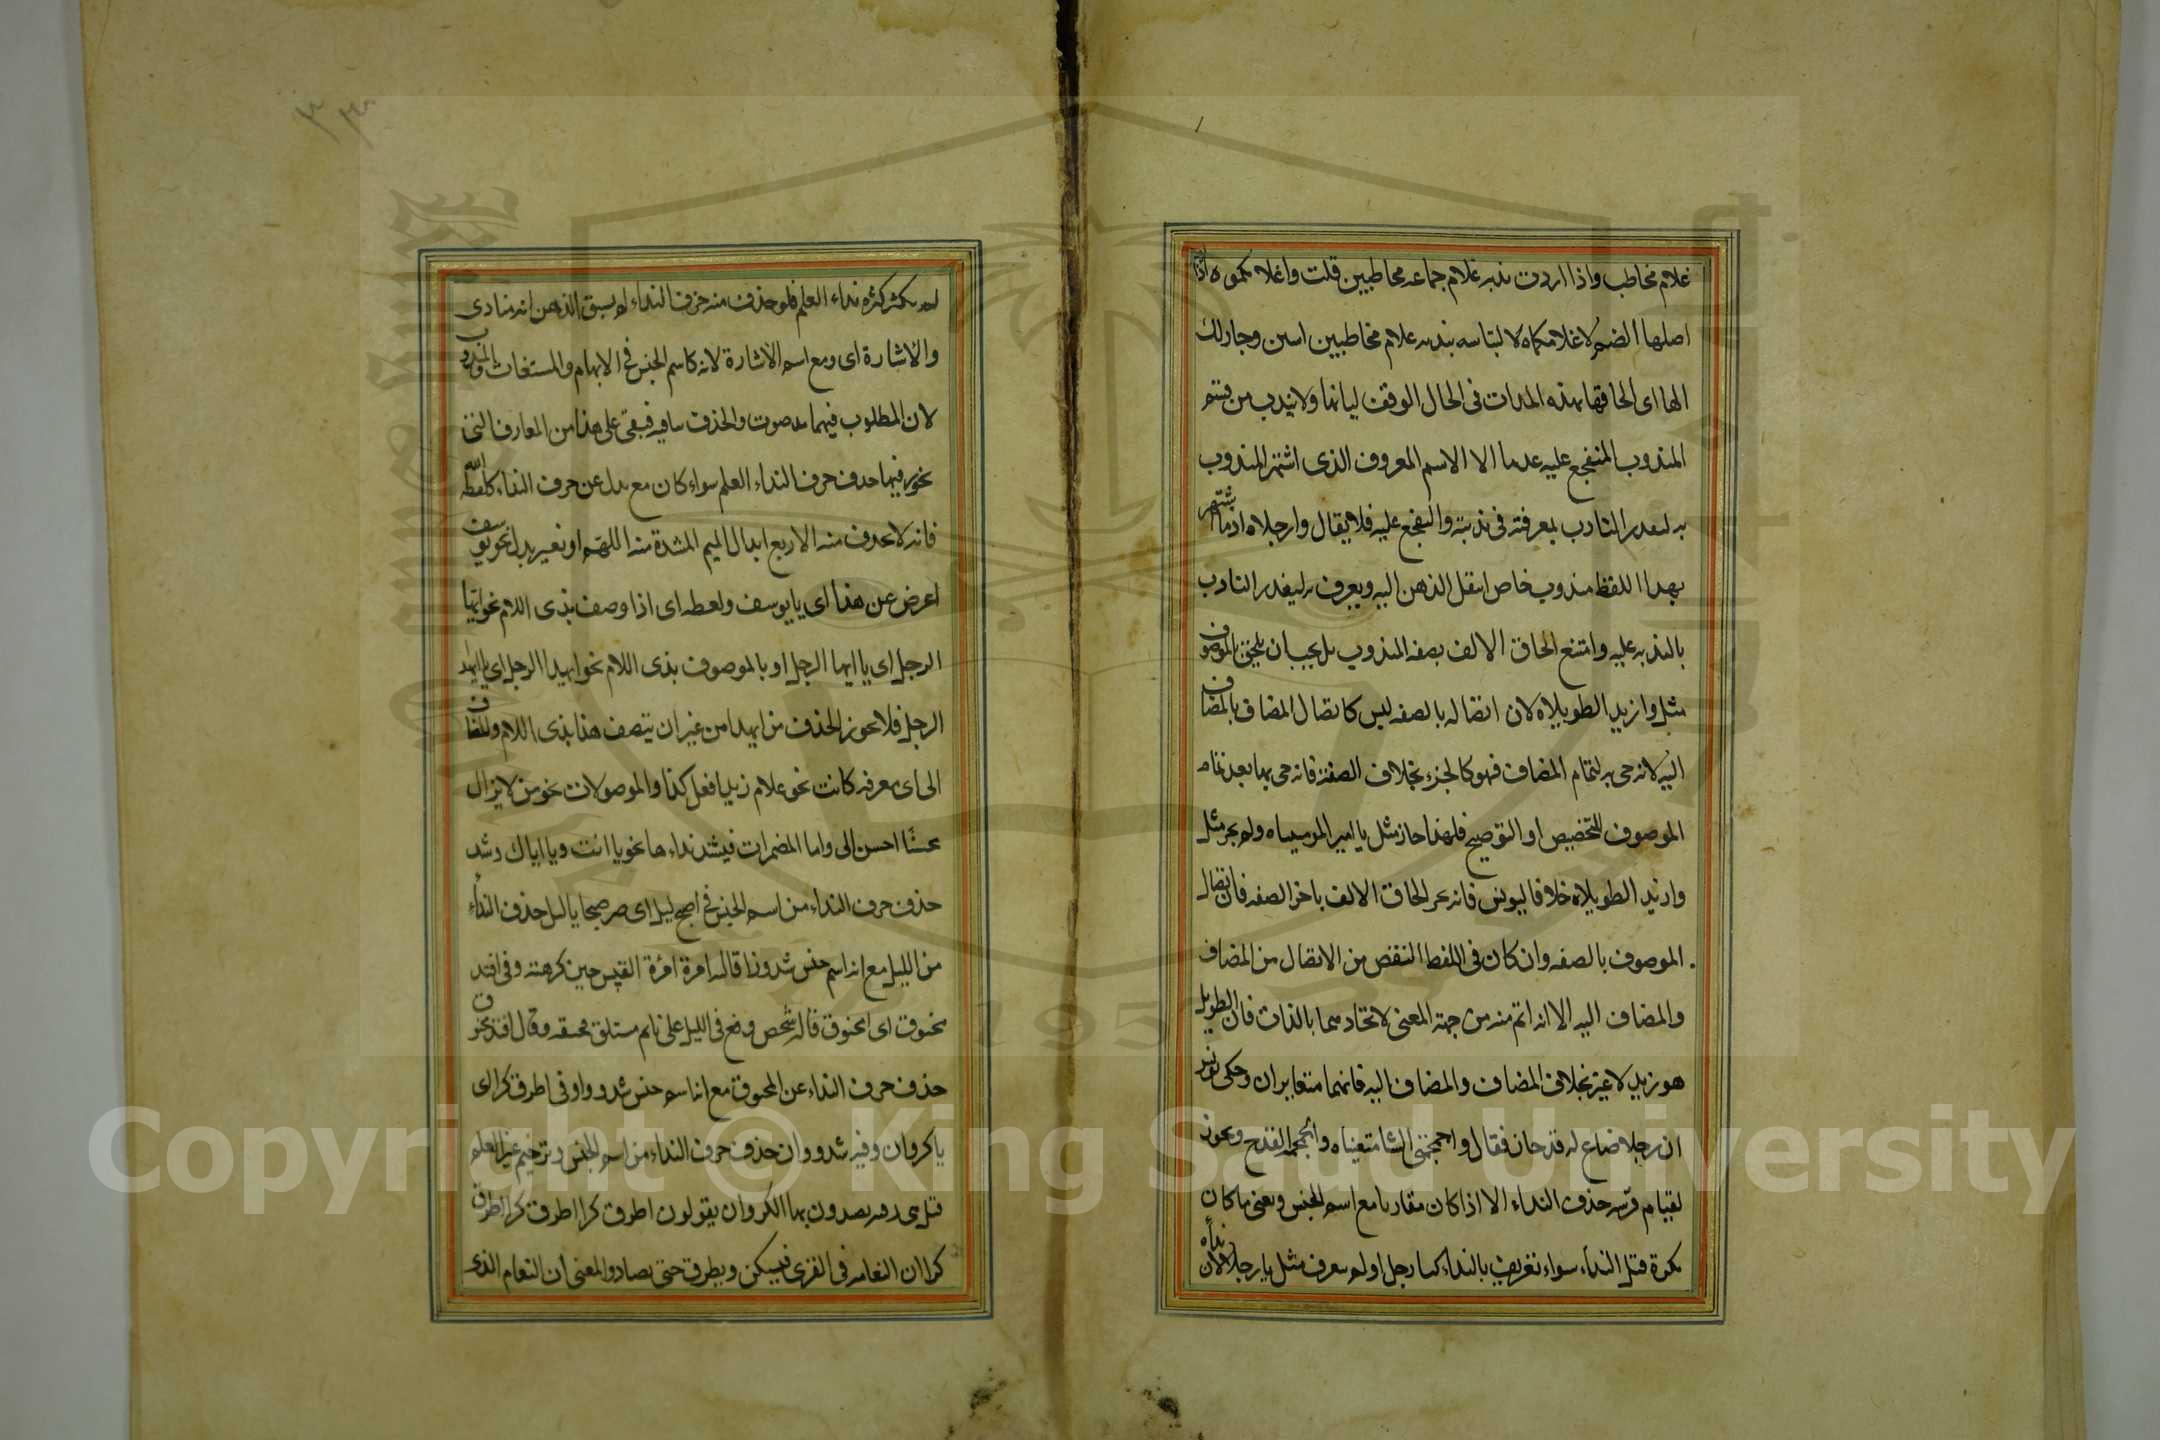 غلام مخاطب واذا اردت ندبه غلام جماعه مخاطبين قلت واغلامكموه اذ
اصلها الضم لا غلامكماه لالتباسه بندبه غلام مخاطبين اسن وجاز لك
الها اى الحاقها بهذه المدات فى الحال الوقف لبيانها ولا يندب من قسم
المندوب المتفجع عليه عدما الا الاسم المعروف الذى اشتهر المندوب
به لتعذر النادب بمعرفته فى ندبته والتفجع عليه فلا يقال وارجلاه اذ ما اشتهر
بهذا اللفظ مندوب خاص انتقل الذهن اليه ويعرف به ليعذر النادب
بالندبه عليه وامتنع الحاق الالف بصفه المندوب بل يجب ان يلحق بالموصوف
مثل وا زيد الطويلاه لان اتصاله بالصفه ليس كاتصال المضاف بالمضاف
اليه لانه جى به لتمام المضاف فهو كالجزء بخلاف الصفة فانه جى بها بعد تمام
الموصوف للتخصيص او التوضيح فلهذا جاز مثل يا امير المومنيناه ولم يجز مثل
وازيد الطويلاه خلافا ليونس فانه يجوز الحاق الالف باخر الصفه فان اتصال
الموصوف بالصفه وان كان فى اللفظ انقص من الاتصال من المضاف
والمضاف اليه الا انه اتم منه من جهة المعنى لاتحادهما بالذات فان الطويل
هو زيد لا غير بخلاف المضاف والمضاف اليه فانهما متغايران وحكى يونس
ان رجلا ضاع له قدحان فقال وا جمجمتى الشاميتيناه والجمجمة القدح ويجوز
لقيام قرينه حذف النداء الا اذا كان مقارنا مع اسم الجنس ويعنى ما كان
نكرة قبل النداء سواء تعرف بالنداء كيا رجل او لم يعرف مثل يا رجلا لان نداه
لم يكثر كثره نداء العلم فلو حذف منه حرف النداء لم يسبق الذهن انه منادى
والاشارة اى ومع اسم الاشارة لانه كاسم الجنس فى الابهام والمستغاث والمندوب
لان المطلوب فيهما مد صوت والحذف ينافيه فبقى على هذا من المعارف التى
يجوز فيها حذف حرف النداء العلم سواء كان مع بدل عن حرف النداء كلفظه الله
فانه لا يحذف منه الا مع ابدال الميم المشددة منه اللهم او بغير بدل نحو يوسف
اعرض عن هذا اى يا يوسف ولفظه اى اذا وصف بذى اللام نحو ايها
الرجل اى يا ايها الرجل او بالموصوف بذى اللام نحو ايهذا الرجل اى يا ايهذا
الرجل فلا يجوز الحذف من ايهذا من غير ان يتصف هذا بذى اللام والمضاف
الى اى معرفه كانت نحو غلام زيد افعل كذا والموصولات نحو من لا يزال
محسنا احسن الى واما المضمرات فيشذ نداءها نحو يا انت ويا اياك وشذ
حذف حرف النداء من اسم الجنس فى اصبح ليل اى صر صبحا يا ليل حذف النداء
من الليل مع انه اسم جنس شذوذا قالته امرة امرؤ القيس حين كرهته وفى افتد
مخنوق اى يا مخنوق قاله شخص وقع فى الليل على نائم مستلق فخنقه وقال افتد مخنوق
حذف حرف النداء عن المخنوق مع انه اسم جنس شذوذا وفى اطرق كرا اى
يا كروان وفيه شذوذان حذف حرف النداء من اسم الجنس وترخيم غير العلم
قيل هى رقيه يصيدون بها الكروان يقولون اطرق كرا اطرق كرا اطرق
كرا ان النعامه فى القرى فيسكن ويطرق حتى يصاد والمعنى ان النعام الذى